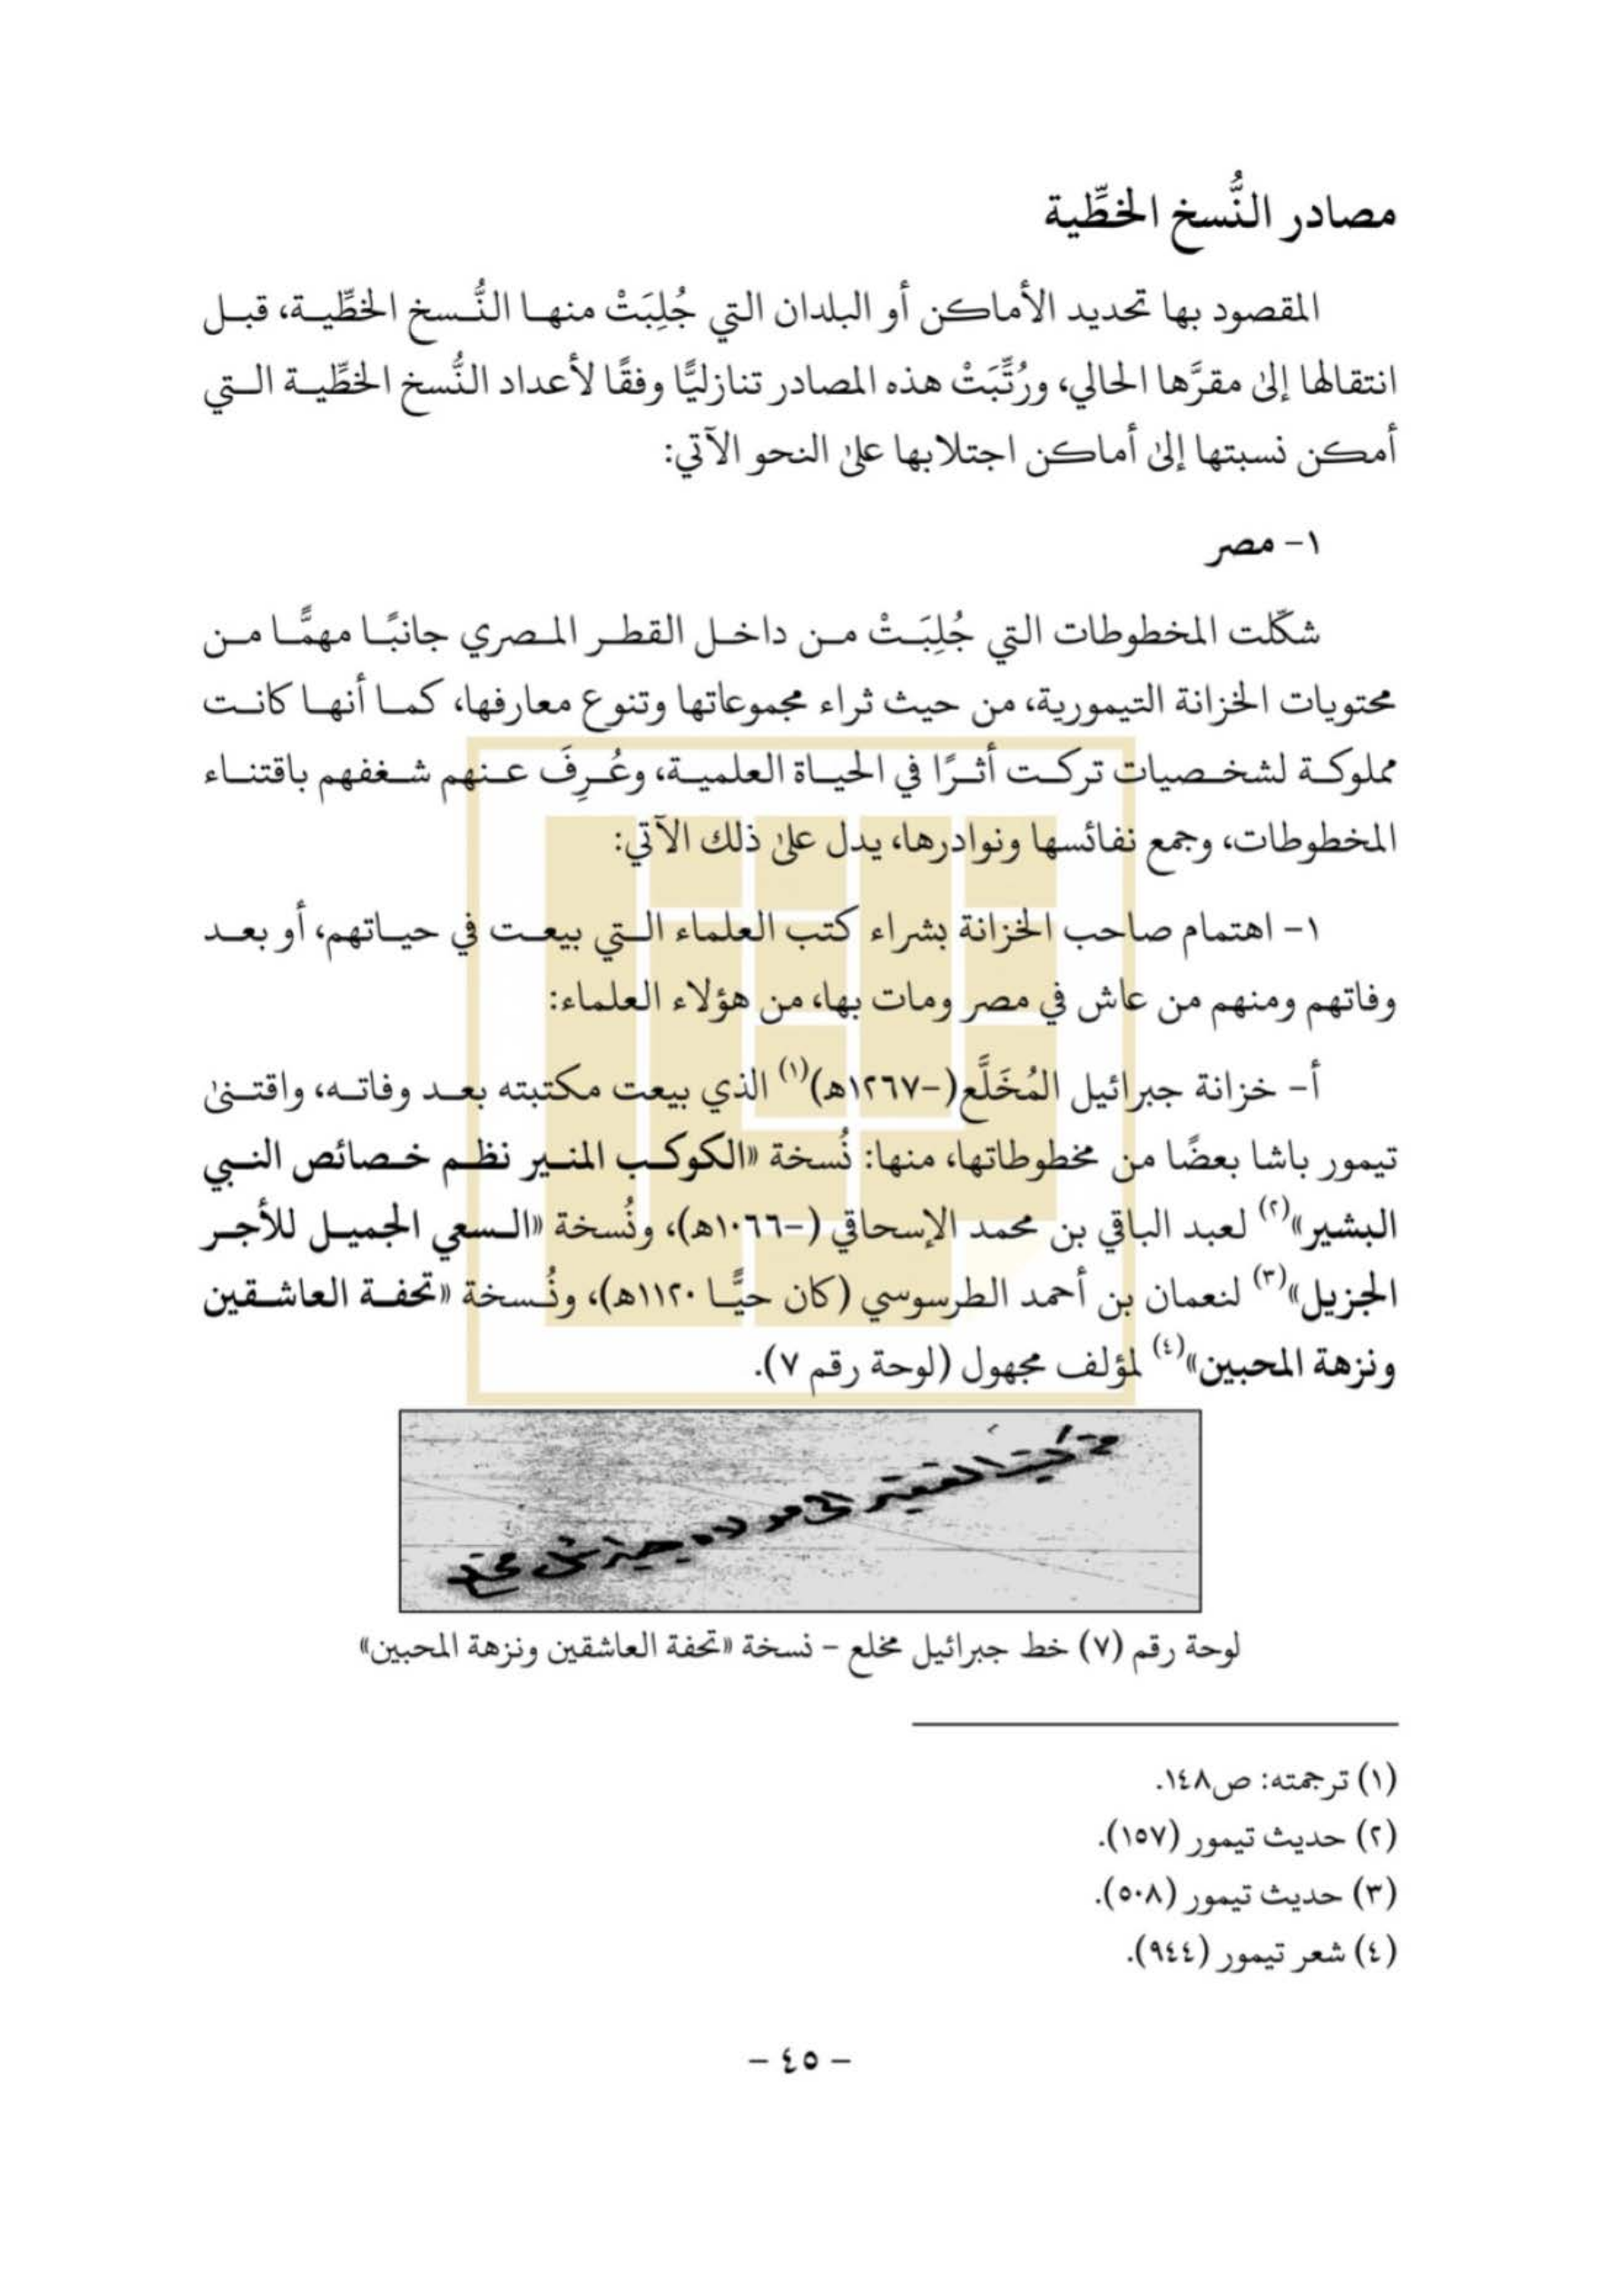 مصادر النُّسخ الخطِّية
المقصود بها تحديد الأماكن أو البلدان التي جُلِبَتْ منها النُّسخ الخطِّية، قبل
انتقالها إلى مقرَّها الحالي، ورُتِّبَتْ هذه المصادر تنازليًّا وفقًا لأعداد النُّسخ الخطِّية التي
أمكن نسبتها إلى أماكن اجتلابها على النحو الآتي:
١- مصر
شكّلت المخطوطات التي جُلِبَتْ من داخل القطر المصري جانبًا مهمًّا من
محتويات الخزانة التيمورية، من حيث ثراء مجموعاتها وتنوع معارفها، كما أنها كانت
مملوكة لشخصيات تركت أثرًا في الحياة العلمية، وعُرِفَ عنهم شغفهم باقتناء
المخطوطات، وجمع نفائسها ونوادرها، يدل على ذلك الآتي:
١- اهتمام صاحب الخزانة بشراء كتب العلماء التي بيعت في حياتهم، أو بعد
وفاتهم ومنهم من عاش في مصر ومات بها، من هؤلاء العلماء:
أ- خزانة جبرائيل المُخَلَّع(-١٢٦٧هـ)(١) الذي بيعت مكتبته بعد وفاته، واقتنى
تيمور باشا بعضًا من مخطوطاتها، منها: نُسخة «الكوكب المنير نظم خصائص النبي
البشير»(٢) لعبد الباقي بن محمد الإسحاقي (-١٠٦٦هـ)، ونُسخة «السعي الجميل للأجر
الجزيل»(٣) لنعمان بن أحمد الطرسوسي (كان حيًّا ١١٢٠هـ)، ونُسخة «تحفة العاشقين
ونزهة المحبين»(٤) لمؤلف مجهول (لوحة رقم ٧).
من كتب الفقير الى مولاه جبرائيل مخلع
لوحة رقم (٧) خط جبرائيل مخلع - نسخة «تحفة العاشقين ونزهة المحبين»
(١) ترجمته: ص١٤٨.
(٢) حديث تيمور (١٥٧).
(٣) حديث تيمور (٥٠٨).
(٤) شعر تيمور (٩٤٤).
- ٤٥ -